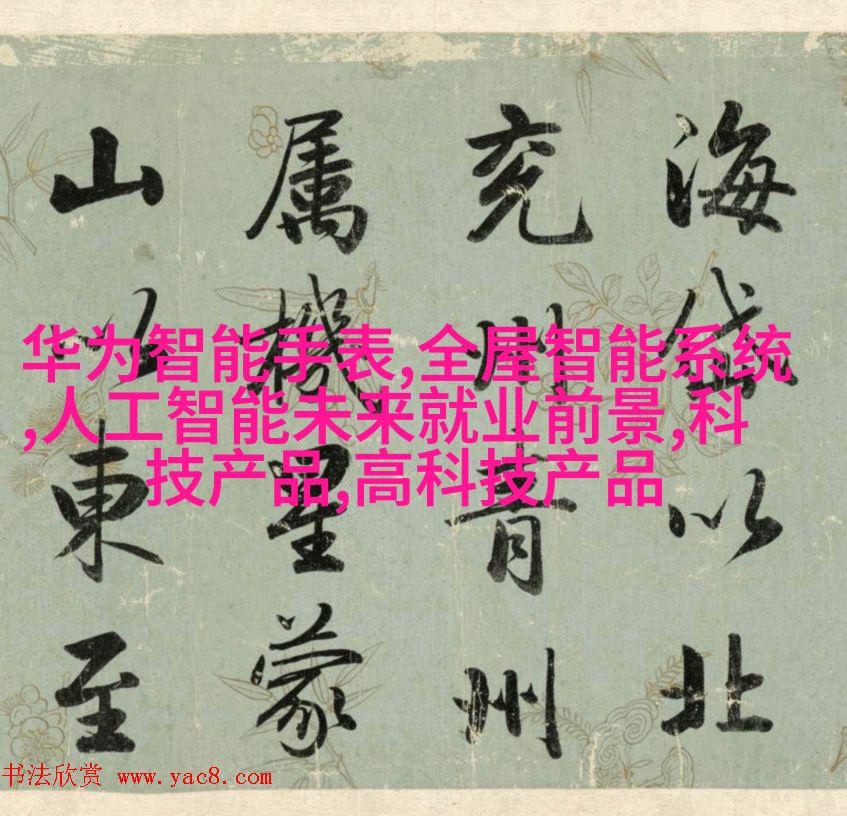 海岱以北
兖州青州
属機星蒙
山以東至
华为智能手表,全屋智能系统
,人工智能未来就业前景,科
技产品,高科技产品
书法欣赏 www.yac8.com